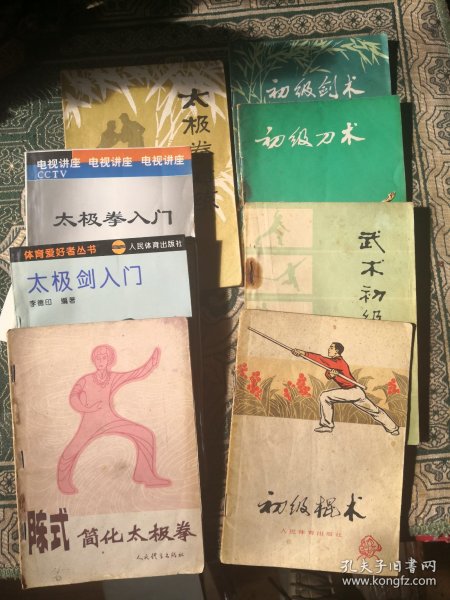 太极拳
初级剑术
初级刀术
电视讲座 电视讲座 电视讲座
CCTV
太极拳入门
武术初级
体育爱好者丛书
人民体育出版社
太极剑入门
李德印 编著
陈式 简化太极拳
人民体育出版社
初级棍术
人民体育出版社
孔夫子旧书网
www.kongfz.com